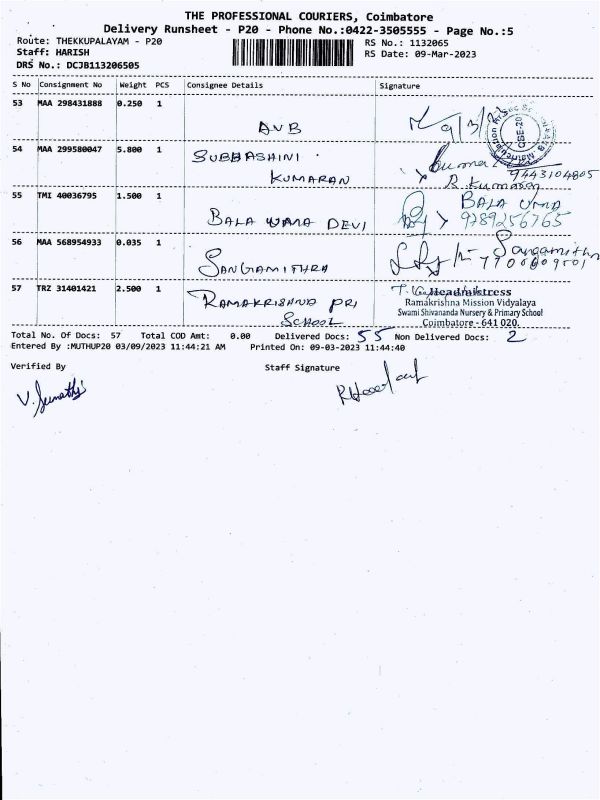 THE PROFESSIONAL COURIERS, Coimbatore
Delivery Runsheet - P20 - Phone No.:0422-3505555 - Page No.:5
Route: THEKKUPALAYAM - P20 RS No.: 1132065
Staff: HARISH RS Date: 09-Mar-2023
DRS No.: DCJB113206505
S No Consignment No Weight PCS Consignee Details Signature
53 MAA 298431888 0.250 1
AVB
54 MAA 299580047 5.800 1
SUBBASHINI
KUMARAN
9443104805
R. Kumaran
55 TMI 40036795 1.500 1
BALA UMA DEVI
BALA UMA
9789256765
56 MAA 568954933 0.035 1
SANGAMITHRA
Sangamithra
57 TRZ 31401421 2.500 1
RAMAKRISHNA PRI
SCHOOL
Headmistress
Ramakrishna Mission Vidyalaya
Swami Shivananda Nursery & Primary School
Coimbatore - 641 020.
Total No. Of Docs: 57 Total COD Amt: 0.00 Delivered Docs: 55 Non Delivered Docs: 2
Entered By :MUTHUP20 03/09/2023 11:44:21 AM Printed On: 09-03-2023 11:44:40
Verified By Staff Signature